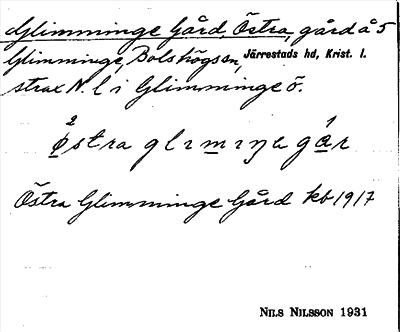 Glimminge Gård, Östra, gård å 5
Glimminge, Bolshögssn, Järrestads hd, Krist. l.
strax N. l i Glimminge ö.
2 1
östra glımıŋa går
Östra Glimminge Gård kb 1917
NILS NILSSON 1931